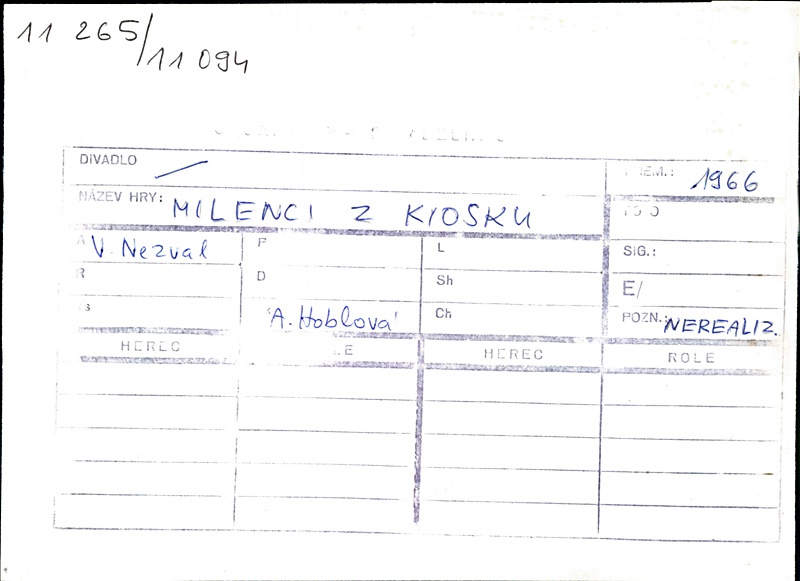 11 265/11 094
DIVADLO
NÁZEV HRY: MILENCI Z KIOSKU
1966
A V. Nezval
P
L
SIG.:
R
D
Sh
E/
A. Hoblová
Ch
POZN.: NEREALIZ.
HEREC
HEREC
ROLE